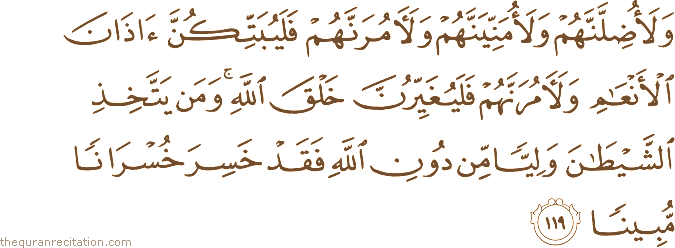 وَلَأُضِلَّنَّهُمْ وَلَأُمَنِّيَنَّهُمْ وَلَـَٔامُرَنَّهُمْ فَلَيُبَتِّكُنَّ ءَاذَانَ
ٱلْأَنْعَـٰمِ وَلَـَٔامُرَنَّهُمْ فَلَيُغَيِّرُنَّ خَلْقَ ٱللَّهِ ۚ وَمَن يَتَّخِذِ
ٱلشَّيْطَـٰنَ وَلِيًّا مِّن دُونِ ٱللَّهِ فَقَدْ خَسِرَ خُسْرَانًا
مُّبِينًا ١١٩
thequranrecitation.com